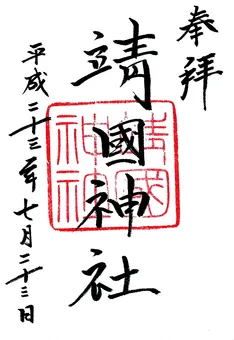 奉拜
靖國神社
平成二十三年七月二十三日
靖國神社